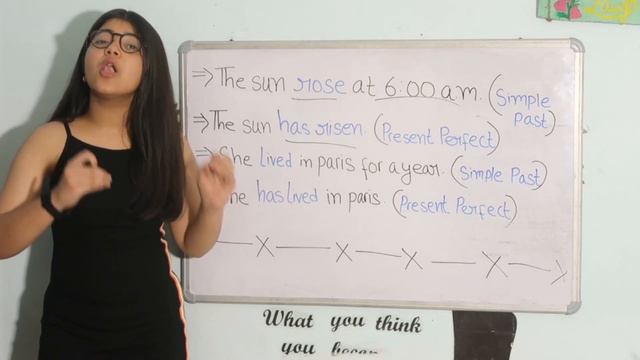 ⇒ The sun rose at 6:00 a.m. (Simple Past)
⇒ The sun has risen. (Present Perfect)
⇒ She lived in paris for a year. (Simple Past)
has lived in paris. (Present Perfect)
— X — X — X — X — X
What you think
you